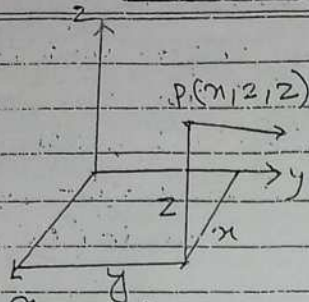 z
P.(x,z,z)
y
z
x
y